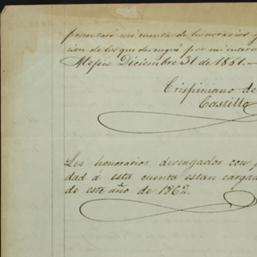 presentará mi cuenta de honorarios y
ción de los que devengué por mi
Mejico Diciembre 31 de 1861.—
Crispiniano de
Castillo
Los honorarios devengados con
dad á esta cuenta estan cargad
de este año de 1862.